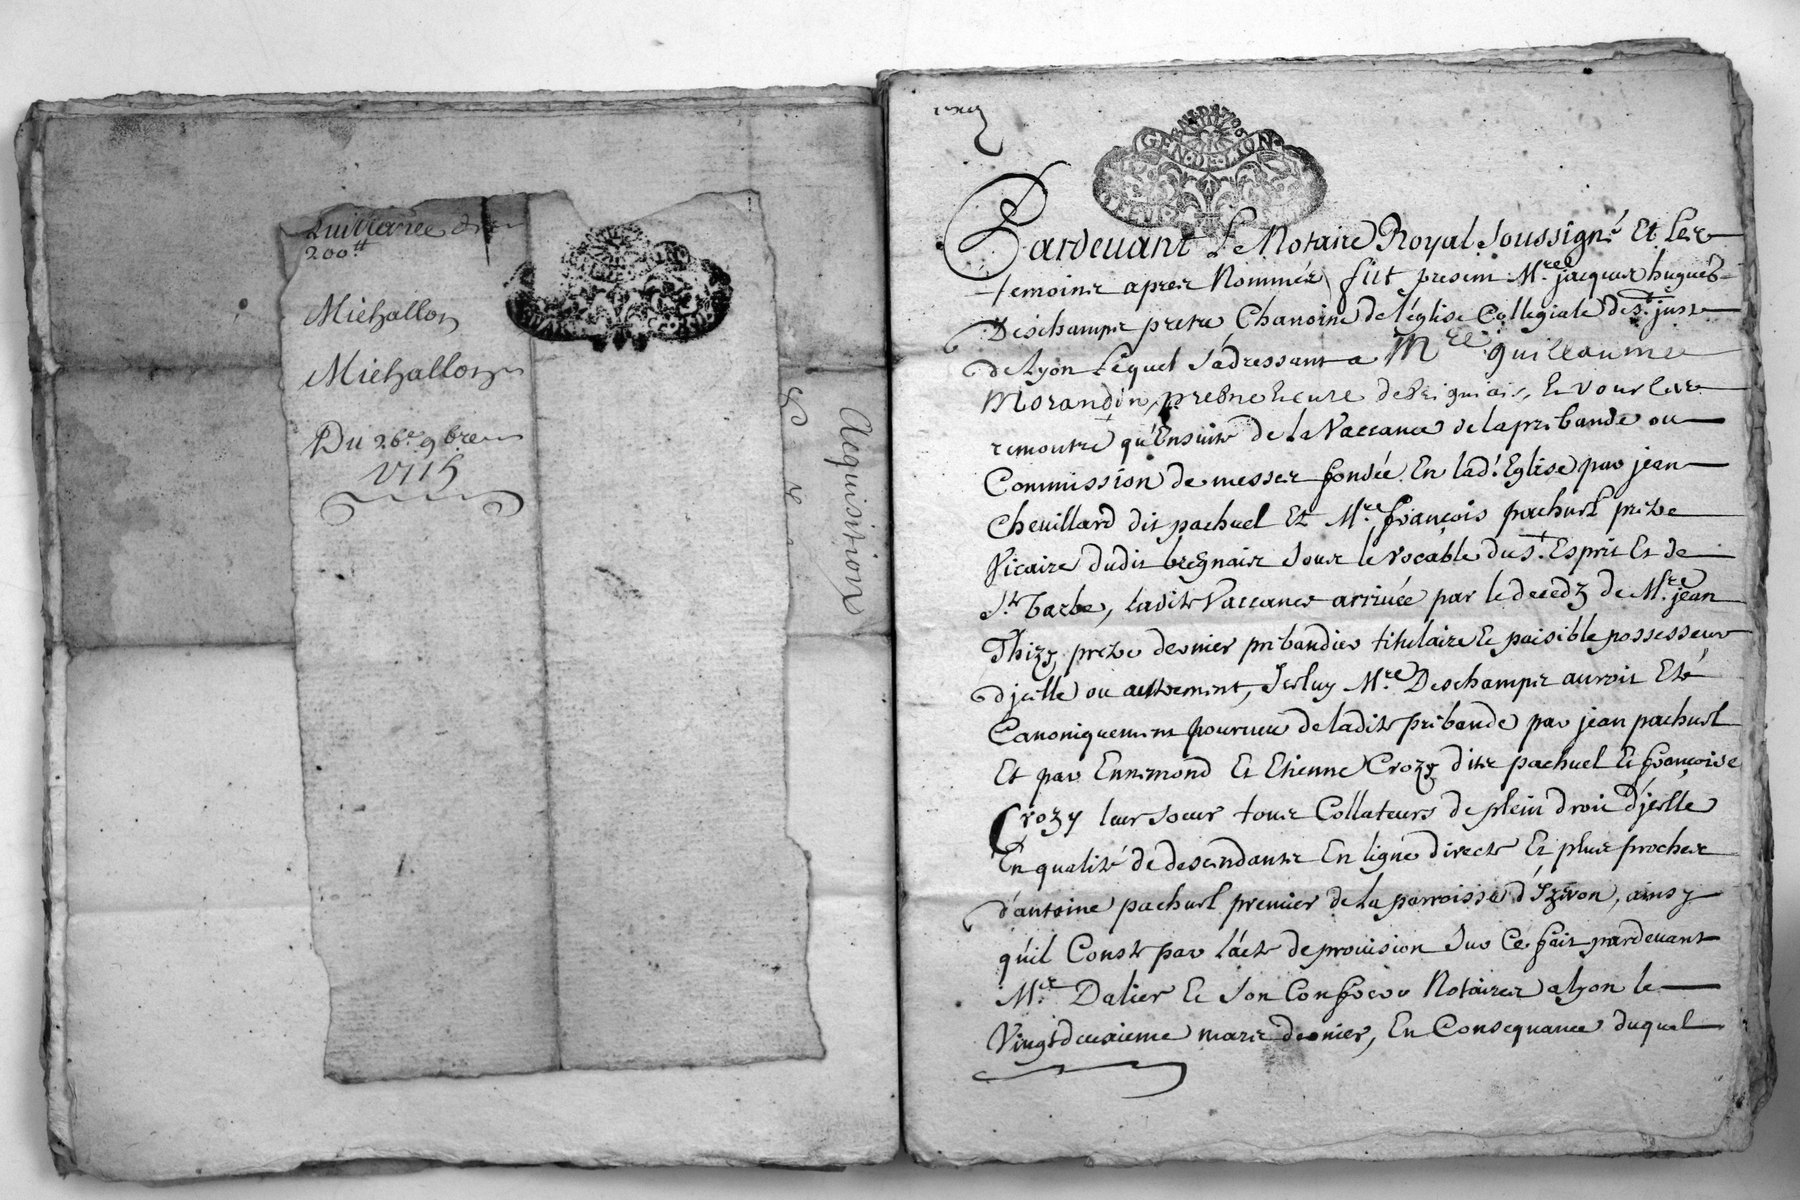 Quittance de
200tt
Michallon
Michallon
Du 26e 9bre
1715
Acquisitions
GEN DE LION
Pardevant Le Notaire Royal soussigné Et les
temoins apres Nommés fut present Mre jacques hugues
Deschamps pretre Chanoine de l'églize Collegiale de St. just
de Lyon Lequel s'adressant a Mre guillaume
Morandin, prebtre & curé de & vourles
remontré qu'Ensuite de la Vaccance de la prebande ou
Commission de messes fondée En lad. Eglise par jean
Chevillard dit pachuel Et Mre françois pachuel pretre
Vicaire dudit bregnais sous le vocable du St. Esprit Et de
Ste barbe, ladite Vaccance arrivée par le decedz de Mre jean
Thizy pretre dernier prebandier titulaire & paisible possesseur
d'jcelle ou autrement, Jceluy Mre Deschamps auroit Eté
Canoniquement pourveu de ladite prebande par jean pachuel
Et par Ennemond Et Etienne Crozy dits pachuel & françoise
Crozy leur soeur tous Collateurs de plein droit d'jcelle
En qualité de descendants En ligne directe Et plus proches
d'antoine pachuel premier de la parroisse d'Izeron, ainsy
qu'il Conste par l'acte de provision sur Ce fait pardevant
Mre Dalier & son Confrere Notaires a lyon le
Vingtdeuxieme mars dernier, En Consequance duquel